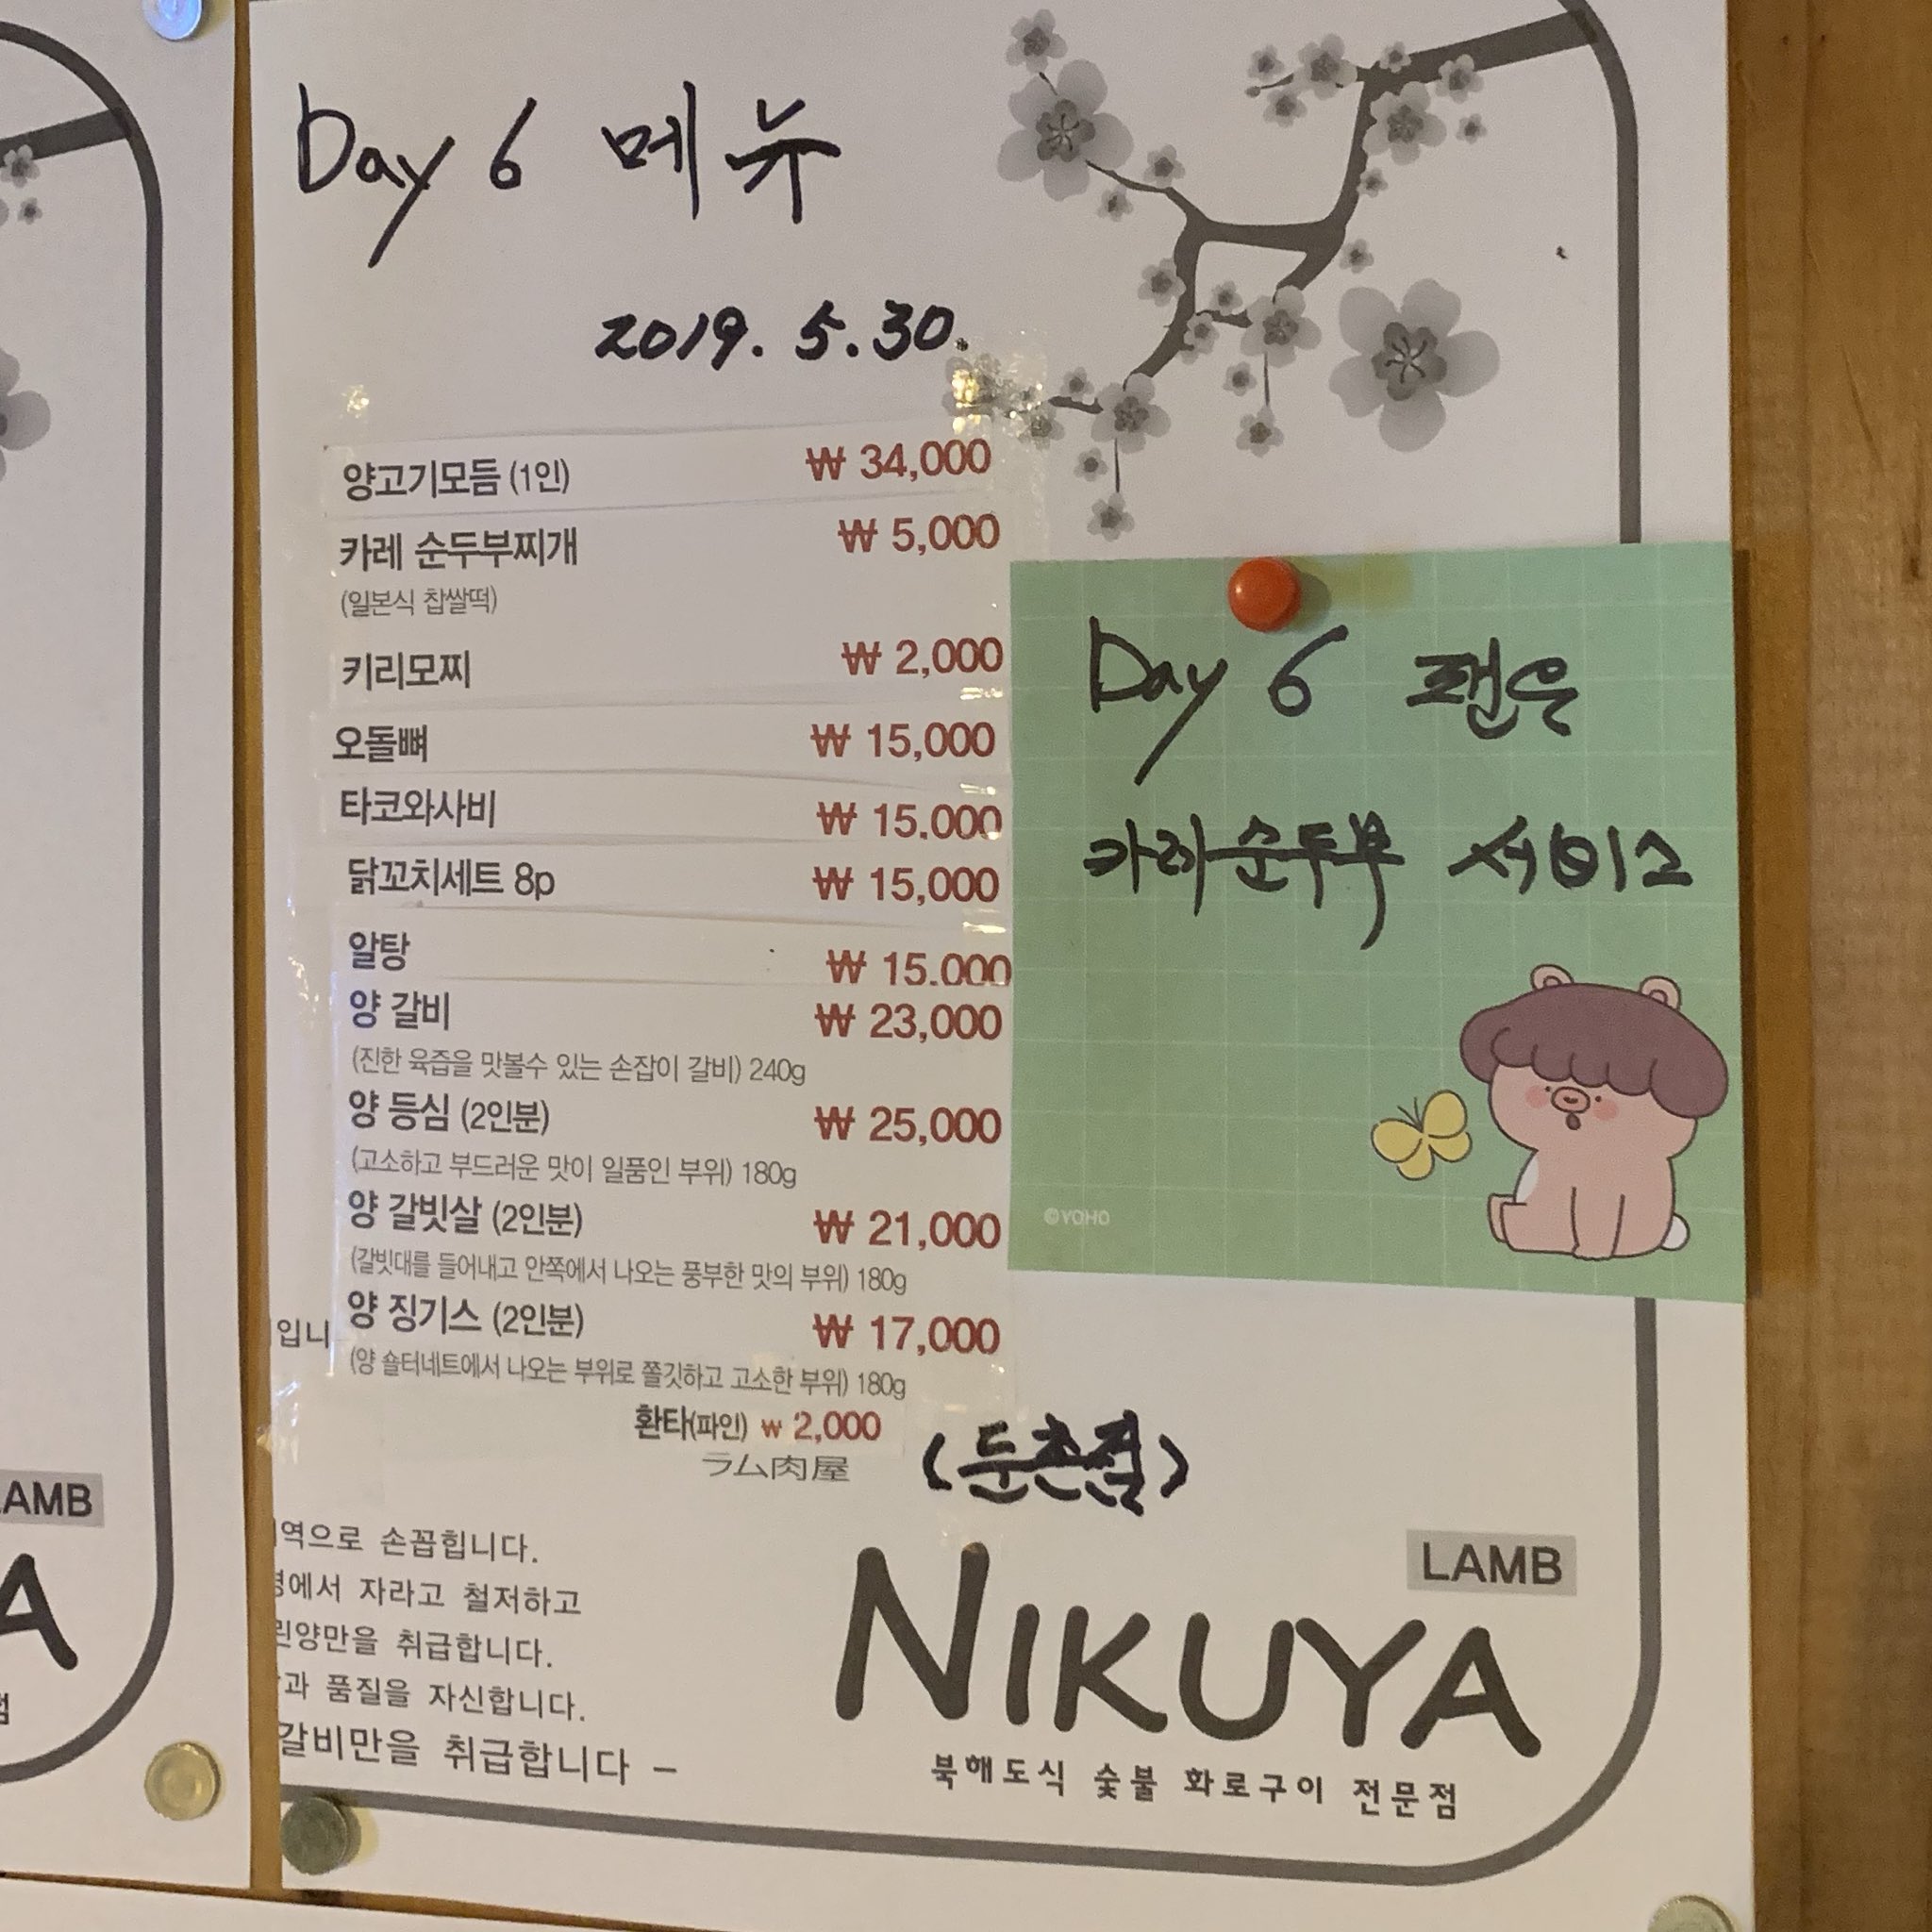 Day 6 메뉴
2019. 5. 30.
양고기모듬 (1인) ₩ 34,000
카레 순두부찌개 ₩ 5,000
(일본식 찹쌀떡)
키리모찌 ₩ 2,000
오돌뼈 ₩ 15,000
타코와사비 ₩ 15.000
닭꼬치세트 8p ₩ 15,000
알탕 ₩ 15.000
양 갈비 ₩ 23,000
(진한 육즙을 맛볼수 있는 손잡이 갈비) 240g
양 등심 (2인분) ₩ 25,000
(고소하고 부드러운 맛이 일품인 부위) 180g
양 갈빗살 (2인분) ₩ 21,000
(갈빗대를 들어내고 안쪽에서 나오는 풍부한 맛의 부위) 180g
양 징기스 (2인분) ₩ 17,000
(양 숄더네트에서 나오는 부위로 쫄깃하고 고소한 부위) 180g
환타(파인) ₩ 2,000
ラム肉屋
(둔촌점)
Day 6 팬은
카레순두부 서비스
©YOHO
입니
역으로 손꼽힙니다.
에서 자라고 철저하고
린양만을 취급합니다.
과 품질을 자신합니다.
갈비만을 취급합니다 –
LAMB
NIKUYA
북해도식 숯불 화로구이 전문점
LAMB
A
점